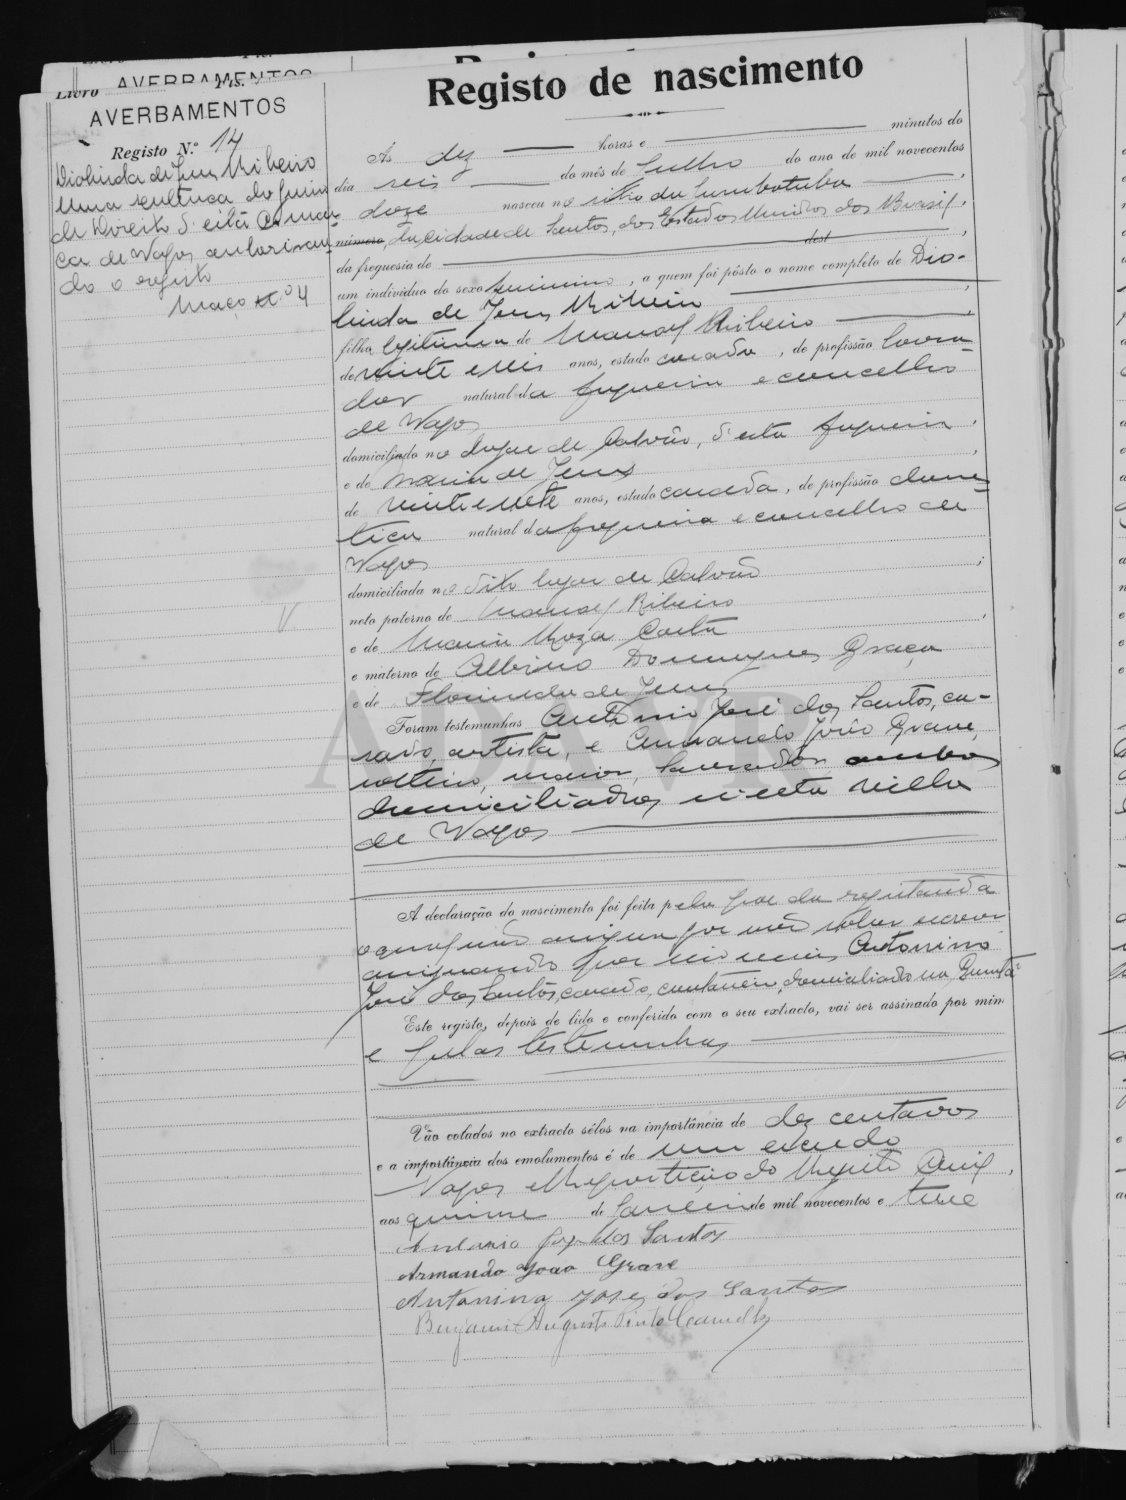 Livro AVERBAMENTOS Fls.
AVERBAMENTOS
Registo N.º 14
Diolinda de Jesus Ribeiro
Uma sentença do Juiz
de Direito d'esta Comar-
ca de Vagos autorisan-
do o registo
Maço n.º 4
Registo de nascimento
Ás dez horas e minutos do
dia seis do mês de Julho do ano de mil novecentos
doze nasceu no sitio da
número, da cidade de Santos, dos Estados Unidos do Brazil,
da freguesia de dest
um individuo do sexo feminino, a quem foi pôsto o nome completo de Dio-
linda de Jesus Ribeiro
filha legitima de Manoel Ribeiro
de vinte e seis anos, estado casado, de profissão lavra-
dor natural da freguesia e concelho
de Vagos
domiciliado no logar de Calvão, d'esta freguesia,
e de Maria de Jesus
de vinte e sete anos, estado casada, de profissão domes-
tica natural da freguesia e concelho de
Vagos
domiciliada no dito logar de Calvão
neto paterno de Manoel Ribeiro
e de Maria Roza Costa
e materno de Albino Domingues Graça
e de Florinda de Jesus
Foram testemunhas António José dos Santos, ca-
sado, artista, e Armando João Grave,
solteiro, maior, lavrador ambos
domiciliados n'esta villa
de Vagos
A declaração do nascimento foi feita pelo pae da registanda
o qual não assigna por não saber escrever
assignando por elle Antonino
José dos Santos, casado, domiciliado na Quintã
Este registo, depois de lido e conferido com o seu extracto, vai ser assinado por mim
e pelas testemunhas
Vão colados no extracto sêlos na importância de dez centavos
e a importância dos emolumentos é de um escudo
Vagos e Repartição do Registo Civil,
aos quinze de Janeiro de mil novecentos e treze
Antonio José dos Santos
Armando João Grave
Antonino José dos Santos
Benjamin Augusto Pinto